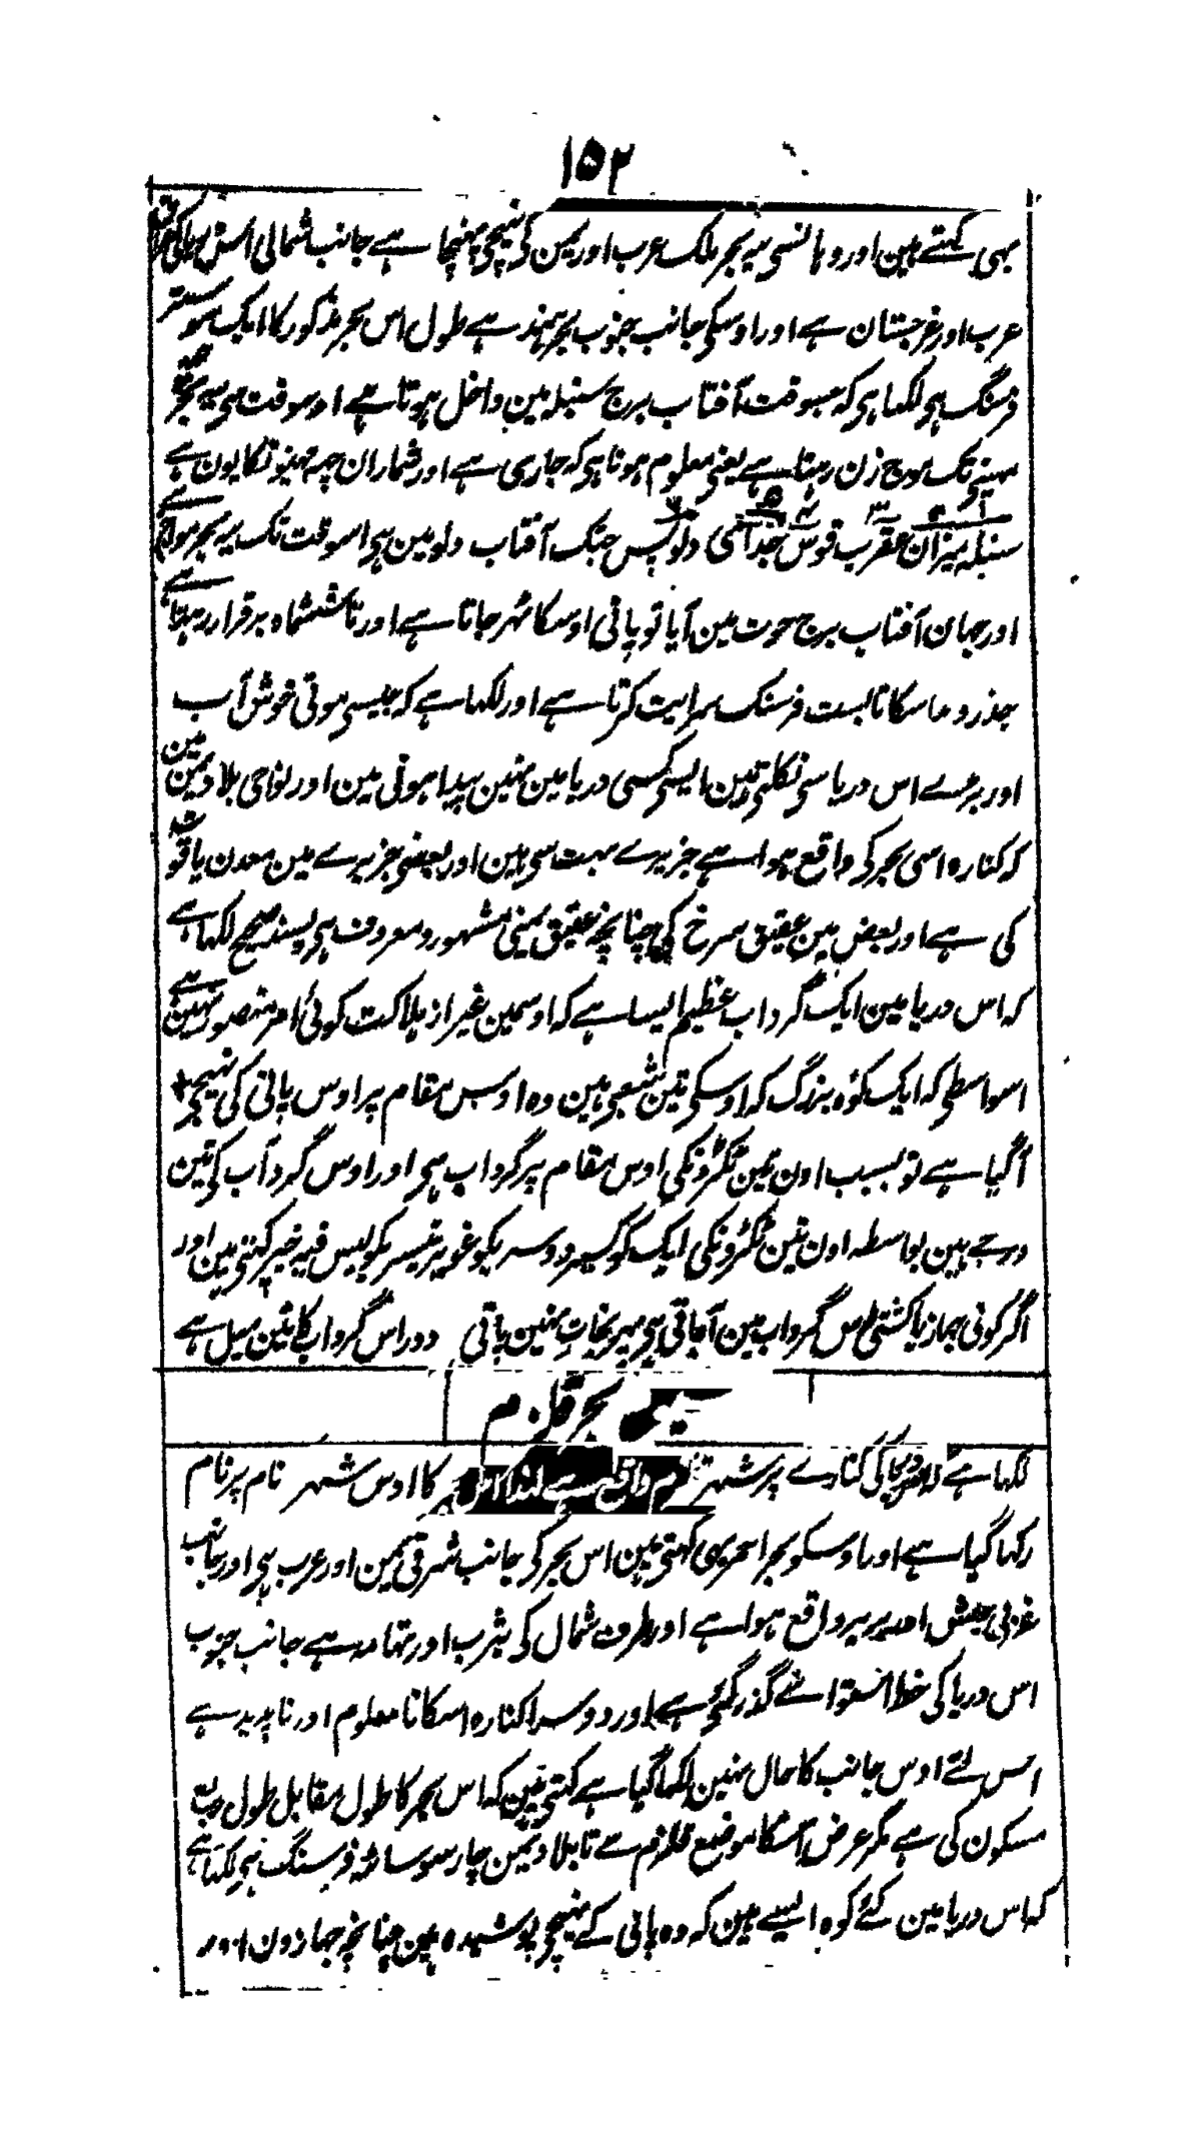 ۱۵۲
بھی کہتے ہین اور وہانسی یہ بحر ملک عرب اور یمن کی نیچی پہنچا ہے جانب شمالی اس دریا کی عراق
عرب اور غرجستان ہے اور اوسکی جانب جنوب بحر ہند ہے طول اس بحر مذکور کا ایک سو ستر
فرسنگ ہی لکھا ہی کہ جسوقت آفتاب برج سنبلہ مین داخل ہوتا ہے اوسوقت سی یہ بحر چھہ
مہینی تک موج زن رہتا ہے یعنی معلوم ہوتا ہی کہ جاری ہے اور شماران چہہ مہینوتکا یون ہے
سنبلہ میزان عقرب قوس جدی دلو پس جبتک آفتاب دلو مین ہی اسوقت تک یہ بحر مواج ہے
اور جہان آفتاب برج حوت مین آیا تو پانی اوسکا ٹہر جاتا ہے اور تا ششماہ برقرار رہتا ہے
جذر و مد اسکا تا بست فرسنگ سرایت کرتا ہے اور لکھا ہے کہ جیسی موتی خوش آب
اور بڑے اس دریا سی نکلتی ہین ایسی کسی دریا مین نہین پیدا ہوتی مین اور نواحی بلاد یمن مین
کہ کنارہ اسی بحر کی واقع ہوا ہے جزیرے بہت سی ہین اور بعضی جزیرے مین معدن یاقوت
کی ہے اور بعض مین عقیق سرخ کی چنانچہ عقیق یمنی مشہور و معروف ہی بسند صحیح لکھا ہے
کہ اس دریا مین ایک گرداب عظیم ایسا ہے کہ اوسمین غیر از ہلاکت کوئی امر متصور نہین ہے
اسواسطی کہ ایک کوہ بزرگ کہ اوسکی تین شعبی ہین وہ اوس مقام پر اوس پانی کی نیچی
آگیا ہے تو بسبب اون تین ٹکڑونکی اوس مقام پر گرداب ہی اور اوس گرداب کی تین
درجے ہین بواسطہ اون تین ٹکڑونکی ایک کو کسیر دوسریکو عویر تیسریکو لیس فیہ خیر کہتی مین اور
اگر کوئی جہاز یا کشتی اس گرداب مین آجاتی ہی پھر نجات نہین پاتی دور اس گرداب کا تین میل ہے
بحر قلزم
لکھا ہے اس دریا کی کنارے پر شہر قلزم واقع ہے لہذا اس بحر کا اوس شہر نام پر نام
رکھا گیا ہے اور اوسکو بحر احمر بھی کہتی مین اس بحر کی جانب شرقی یمن اور عرب ہی اور جانب
غربی حبش اور بربر واقع ہوا ہے اور طرف شمال کی یثرب اور تہامہ ہے جانب جنوب
اس دریا کی خط استوا سے گذر گئی ہے اور دوسرا کنارہ اسکا نامعلوم اور ناپدید ہے
اس لئے اوس جانب کا حال نہین لکھا گیا ہے کہتی ہین کہ اس بحر کا طول مقابل طول ربع
مسکون کی ہے مگر عرض اسکا موضع قلزم سے تا بلاد یمن چار سو ساٹھ فرسنگ ہی لکھا ہے
کہ اس دریا مین کئے کوہ ایسے مین کہ وہ پانی کے نیچی پوشیدہ ہین چنانچہ جہازون اور